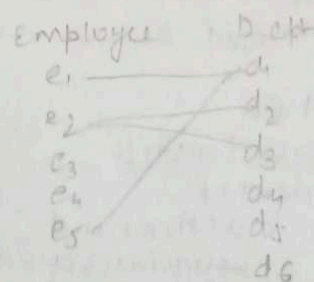 Employee Dept
e1 d1
e2 d2
e3 d3
e4 d4
e5 d5
d6